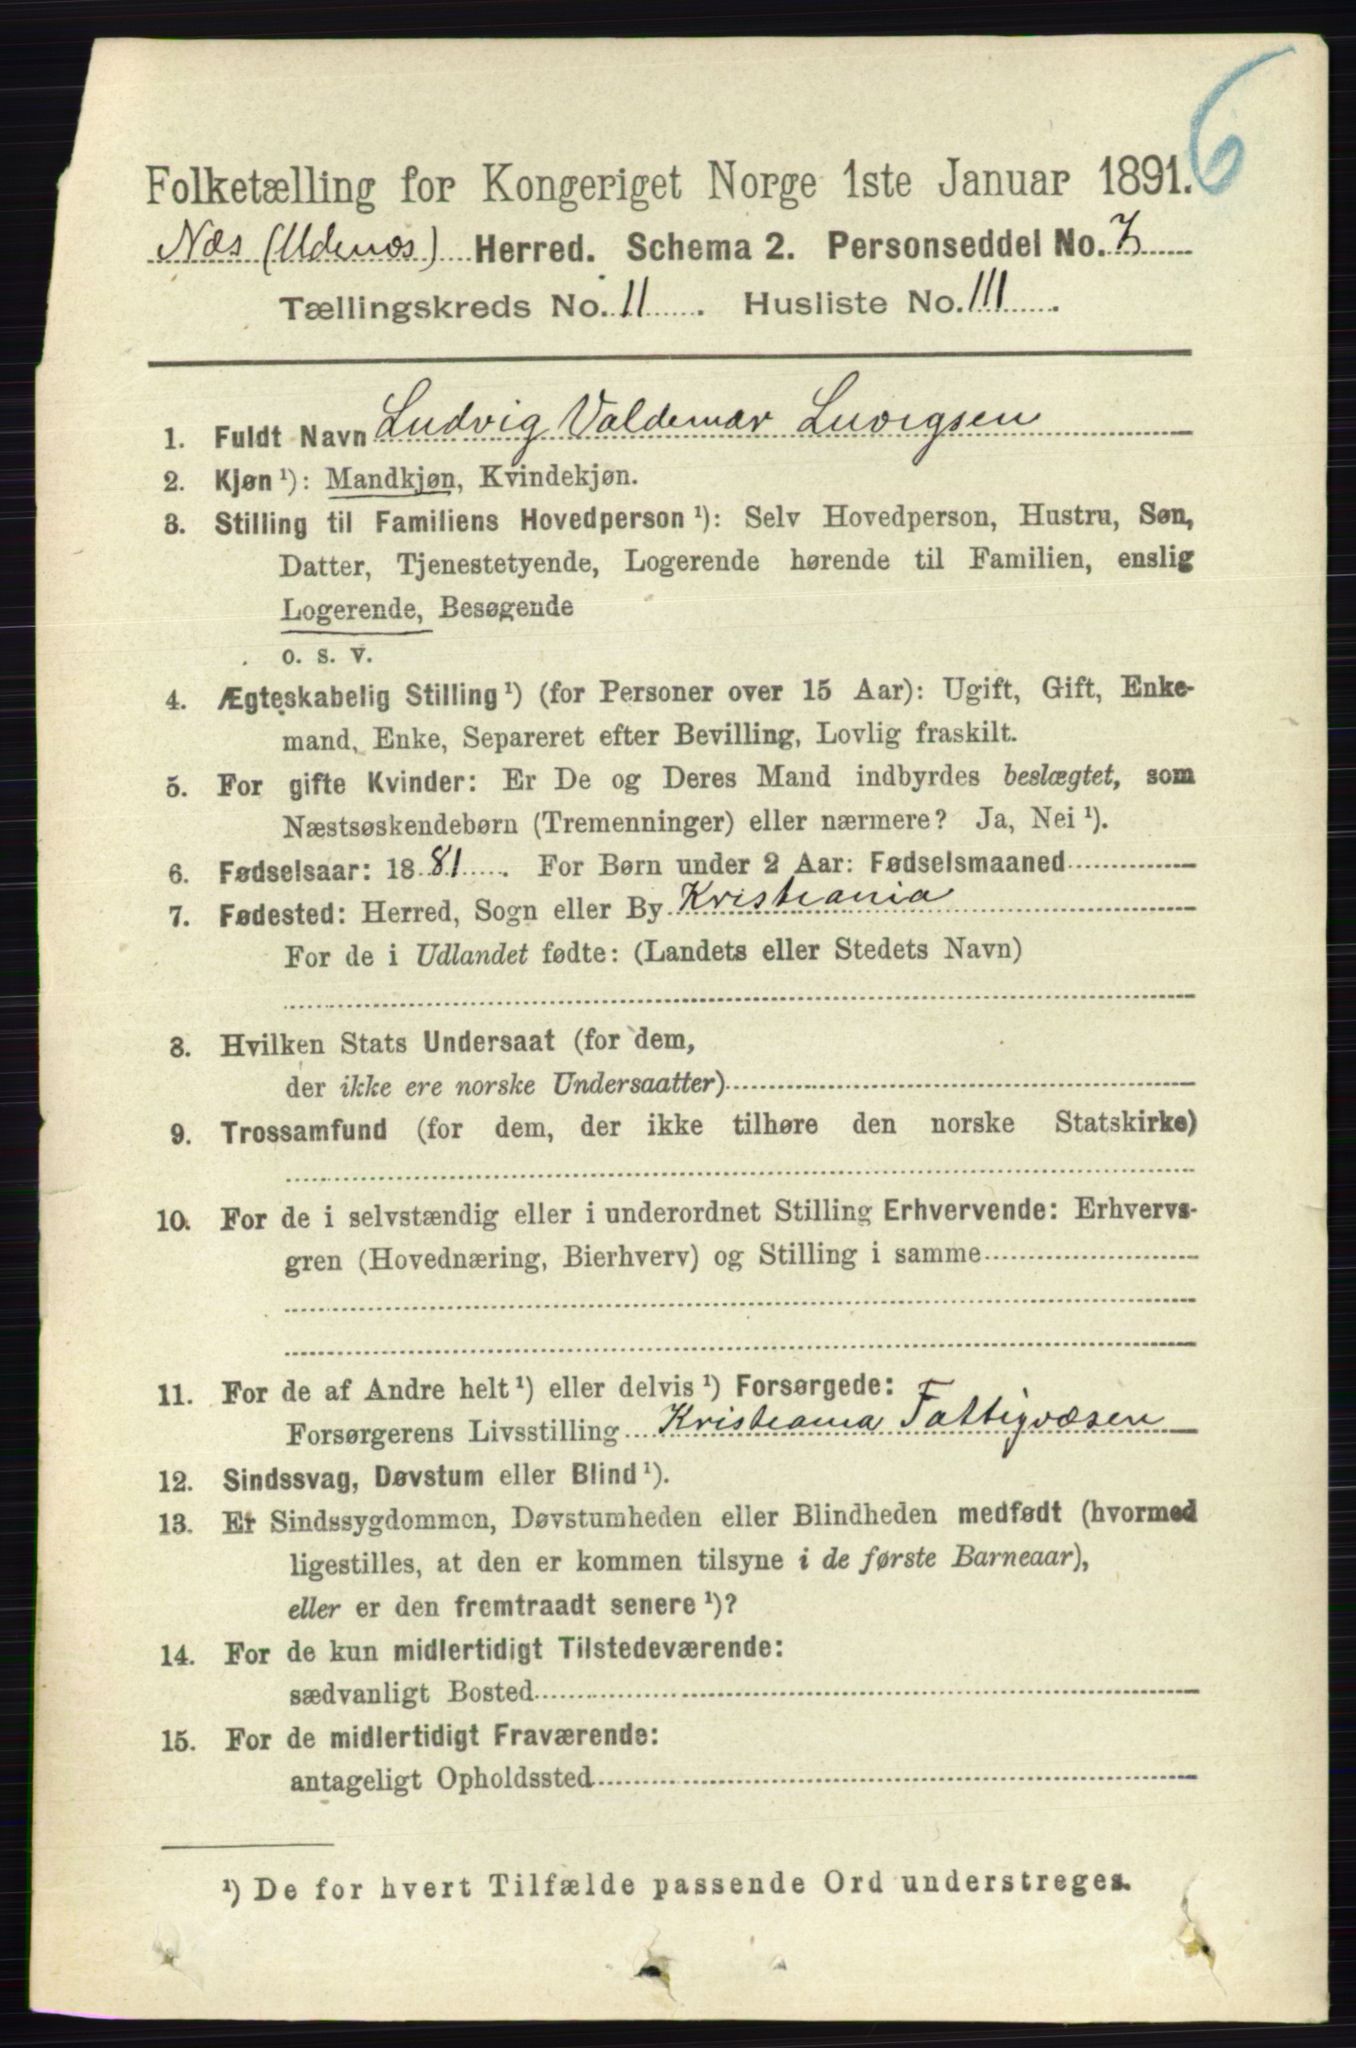 6
Folketælling for Kongeriget Norge 1ste Januar 1891.
Næs (Udenæs) Herred. Schema 2. Personseddel No. 7
Tællingskreds No. 11. Husliste No. 111.
1. Fuldt Navn Ludvig Valdemar Luvigsen
2. Kjøn ¹): Mandkjøn, Kvindekjøn.
3. Stilling til Familiens Hovedperson ¹): Selv Hovedperson, Hustru, Søn,
Datter, Tjenestetyende, Logerende hørende til Familien, enslig
Logerende, Besøgende
o. s. v.
4. Ægteskabelig Stilling ¹) (for Personer over 15 Aar): Ugift, Gift, Enke-
mand, Enke, Separeret efter Bevilling, Lovlig fraskilt.
5. For gifte Kvinder: Er De og Deres Mand indbyrdes beslægtet, som
Næstsøskendebørn (Tremenninger) eller nærmere? Ja, Nei ¹).
6. Fødselsaar: 1881. For Børn under 2 Aar: Fødselsmaaned
7. Fødested: Herred, Sogn eller By Kristiania
For de i Udlandet fødte: (Landets eller Stedets Navn)
8. Hvilken Stats Undersaat (for dem,
der ikke ere norske Undersaatter)
9. Trossamfund (for dem, der ikke tilhøre den norske Statskirke)
10. For de i selvstændig eller i underordnet Stilling Erhvervende: Erhvervs-
gren (Hovednæring, Bierhverv) og Stilling i samme
11. For de af Andre helt ¹) eller delvis ¹) Forsørgede:
Forsørgerens Livsstilling Kristiania Fattigvæsen
12. Sindssvag, Døvstum eller Blind ¹).
13. Er Sindssygdommen, Døvstumheden eller Blindheden medfødt (hvormed
ligestilles, at den er kommen tilsyne i de første Barneaar),
eller er den fremtraadt senere ¹)?
14. For de kun midlertidigt Tilstedeværende:
sædvanligt Bosted
15. For de midlertidigt Fraværende:
antageligt Opholdssted
¹) De for hvert Tilfælde passende Ord understreges.